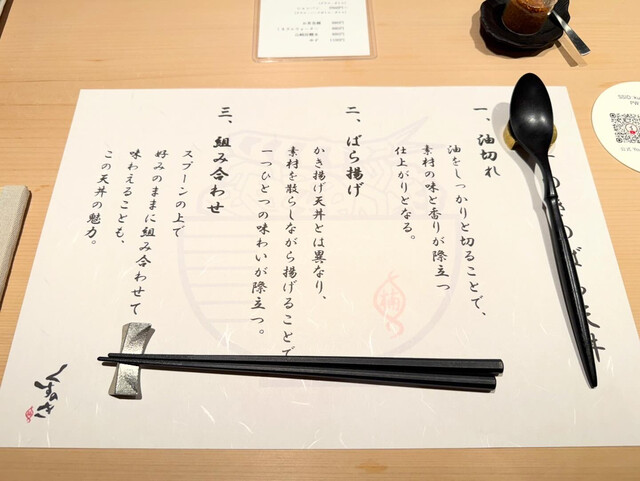 一、油切れ
油をしっかりと切ることで、
素材の味と香りが際立つ
仕上がりとなる。
二、ばら揚げ
かき揚げ天丼とは異なり、
素材を散らしながら揚げることで
一つひとつの味わいが際立つ。
三、組み合わせ
スプーンの上で
好みのままに組み合わせて
味わえることも、
この天丼の魅力。
くすのき